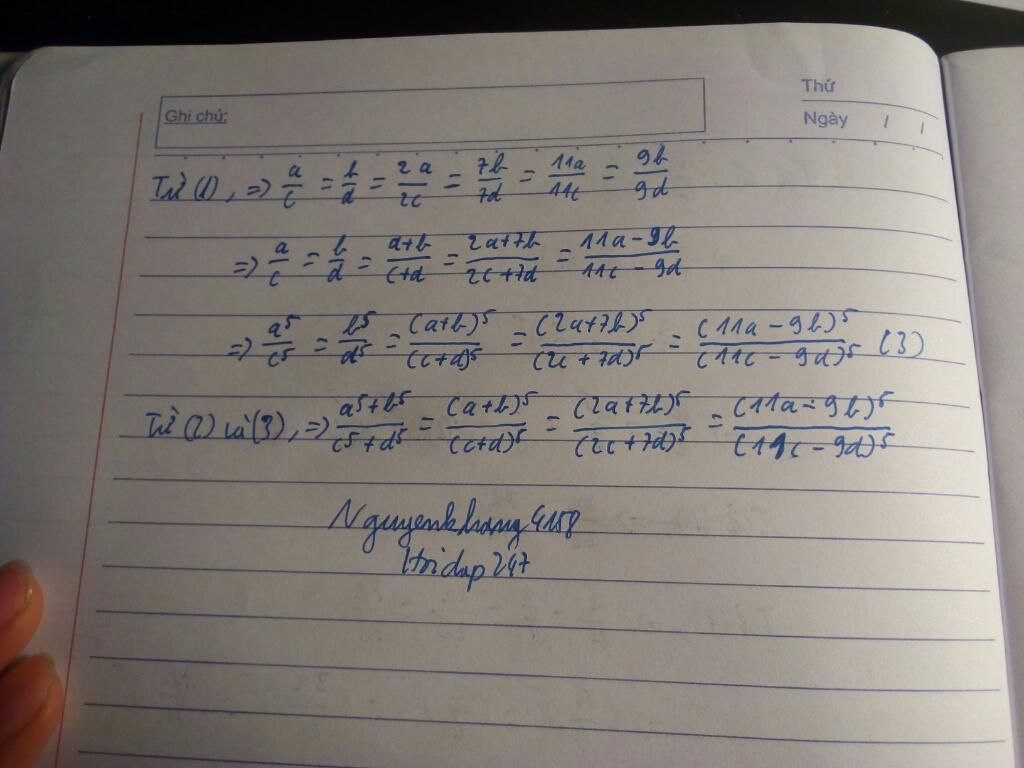 Thứ
Ghi chú:
Ngày / /
Từ (1), => a/c = b/d = 2a/2c = 7b/7d = 11a/11c = 9b/9d
=> a/c = b/d = a+b/c+d = 2a+7b/2c+7d = 11a-9b/11c-9d
=> a⁵/c⁵ = b⁵/d⁵ = (a+b)⁵/(c+d)⁵ = (2a+7b)⁵/(2c+7d)⁵ = (11a-9b)⁵/(11c-9d)⁵ (3)
Từ (2) và (3), => a⁵+b⁵/c⁵+d⁵ = (a+b)⁵/(c+d)⁵ = (2a+7b)⁵/(2c+7d)⁵ = (11a-9b)⁵/(11c-9d)⁵
Nguyenkhang4158
Hoidap247